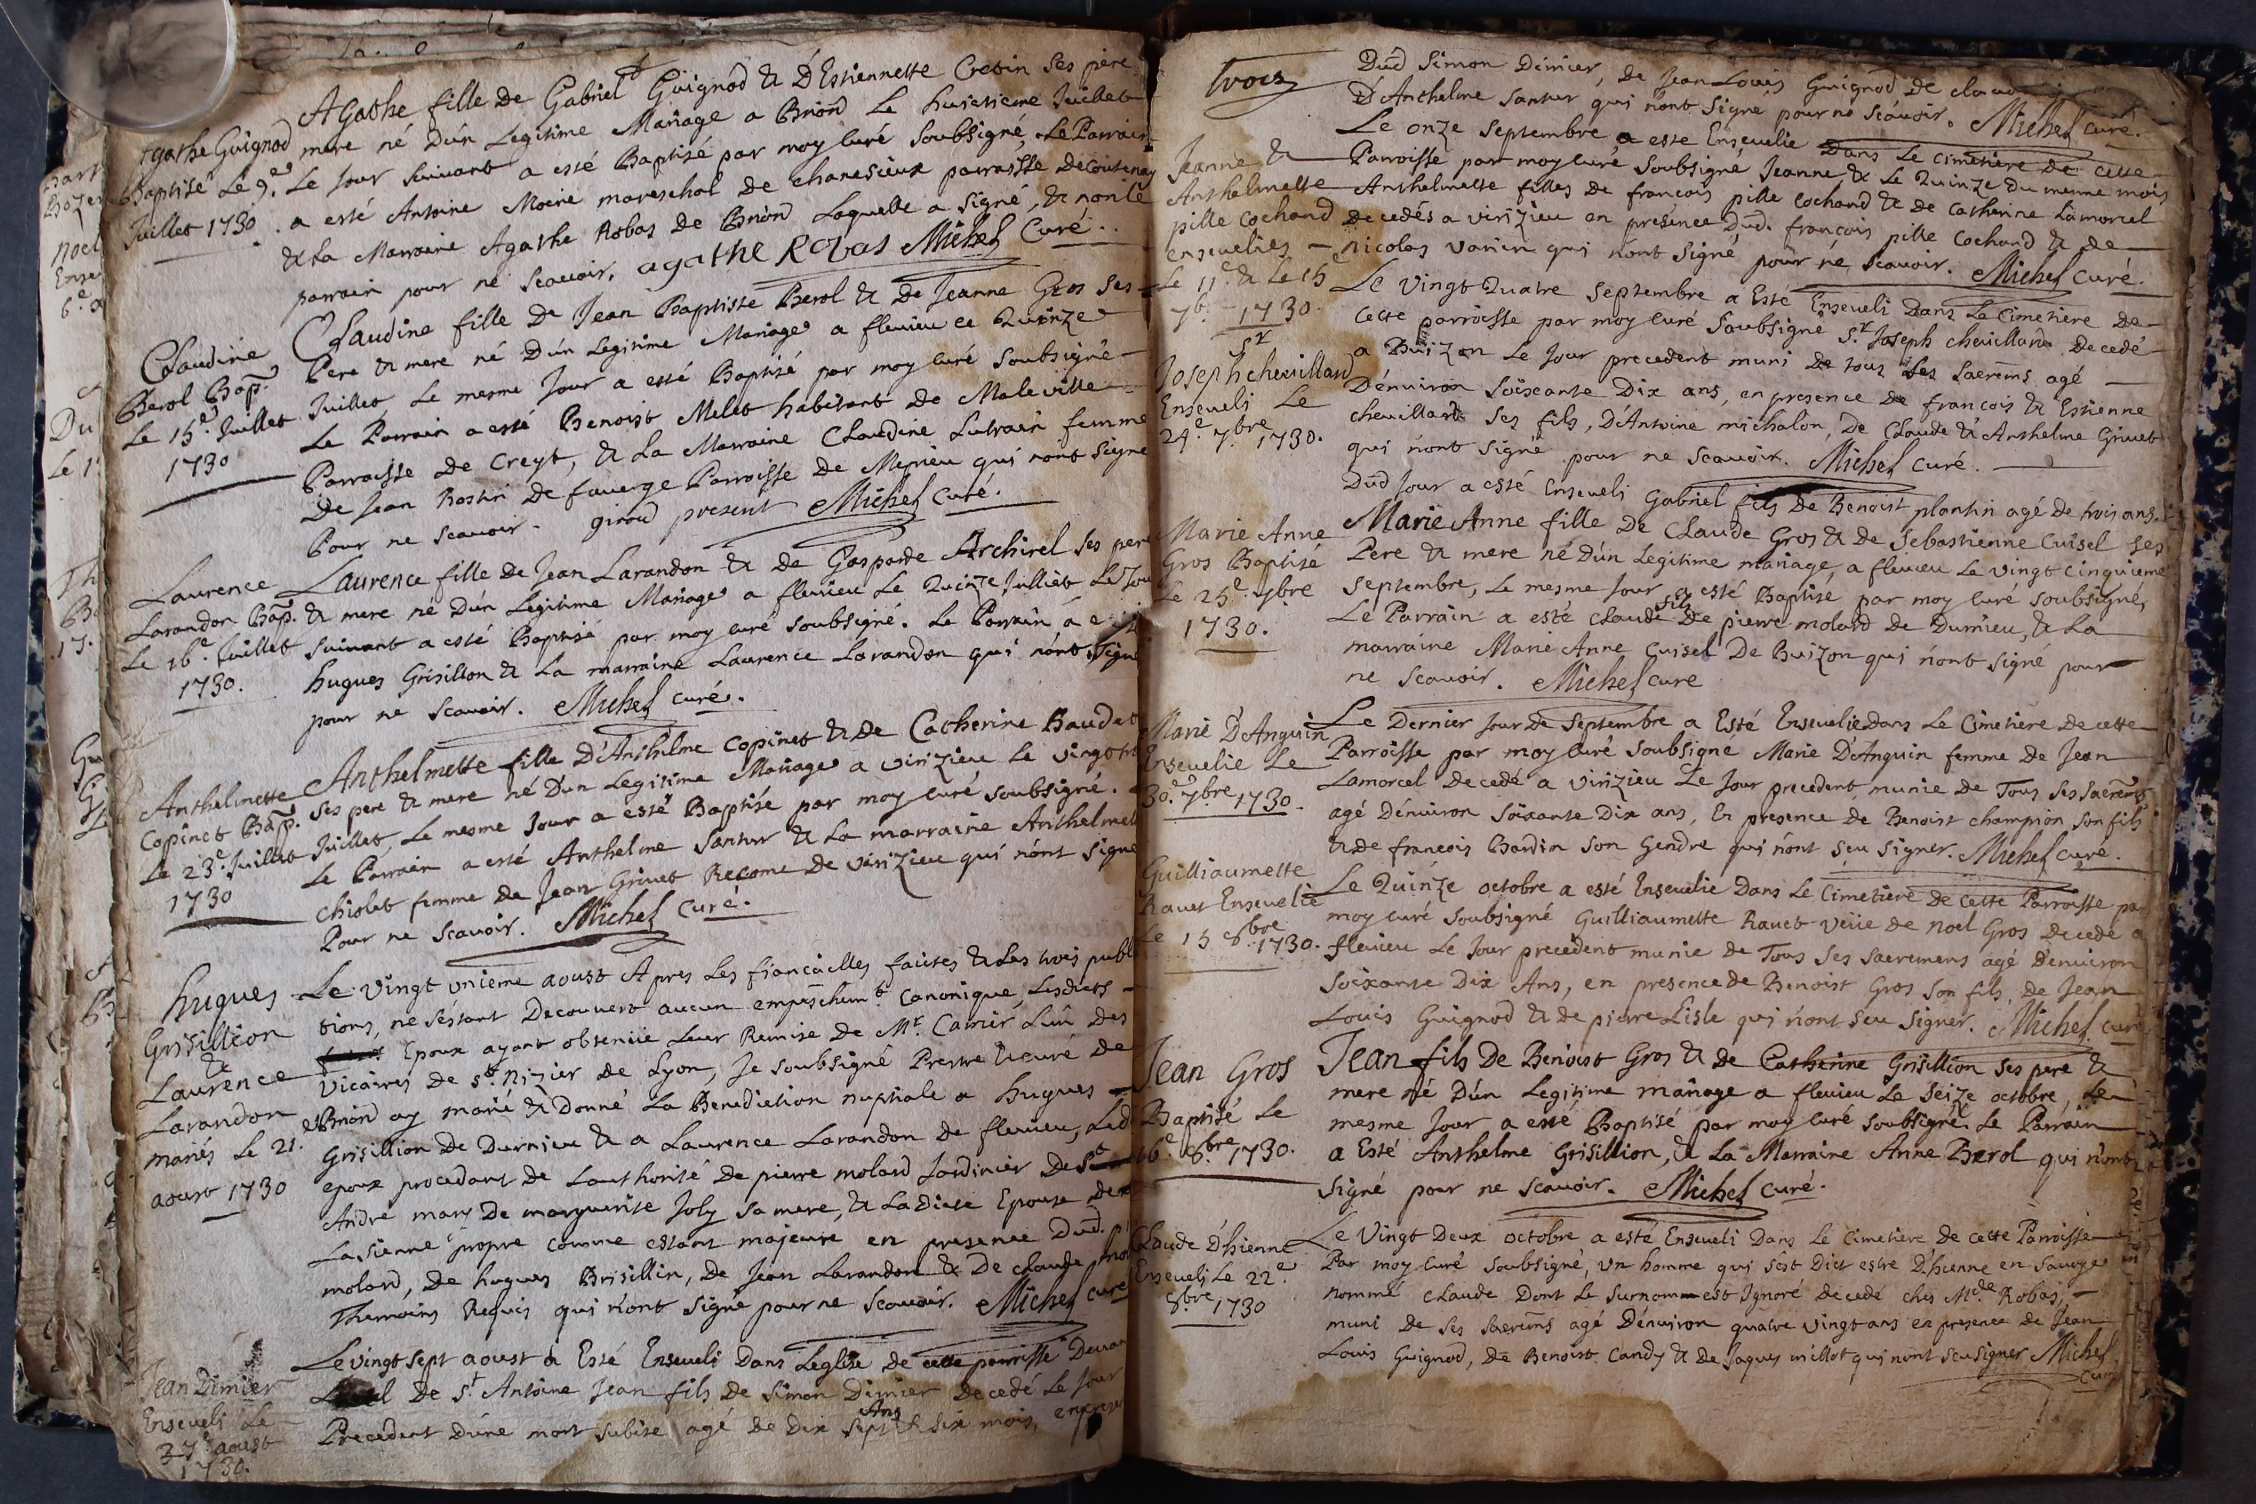 Agathe Guignod
Baptisé Le 9e
Juillet 1730.
Agathe fille de Gabriel Guignod & D'Estiennette Cretin ses pere
mere né d'ún Legitime Mariage a Briord Le huictieme Juillet
Le Jour suivant a esté Baptisé par moy curé soubsigné, Le Parrain
a esté Antoine Moine mareschal de chanesieux parroisse de Coutenay
& La Marraine Agathe Robas de Briord Laquelle a signé, & non le
parrain pour ne scavoir. agathe Robas Michel Curé.
Claudine
Berol Bap.
Le 15e Juillet
1730
Claudine fille de Jean Baptiste Berol & de Jeanne Gros ses
Pere & mere né d'ún Legitime Mariage a flevieu ce Quinze
Juillet Le mesme Jour a esté Baptisé par moy curé soubsigné
Le Parrain a esté Benoist Melet habitant de Maleville
Parroisse de Creyt, & La Marraine Claudine Lutrain femme
de Jean Rostin de faverge Parroisse de Mepieu qui n'ont signé
Pour ne scavoir. giroud present Michel Curé.
Laurence
Larandon Bap.
Le 16e Juillet
1730.
Laurence fille de Jean Larandon & de Gasparde Archirel ses pere
& mere né d'ún Legitime Mariage a flevieu Le Quinze Julliet Le Jou
suivant a esté Baptisé par moy curé soubsigné. Le Parrain á e
hugues Grisillon & La marraine Laurence Larandon qui n'ont signé
pour ne scavoir. Michel curé.
Anthelmette
Copinet Bap.
Le 23e Juillet
1730
Anthelmette fille D'Anthelme Copinet & de Catherine Baudet
ses pere & mere né d'un Legitime Mariage a virizieu Le vingt tr
Juillet, Le mesme Jour a esté Baptisé par moy curé soubsigné.
Le Parrain a esté Anthelme Santur & La marraine Anthelmet
chiolet femme de Jean Grivet Recome de virizieu qui n'ont signé
Pour ne scavoir. Michel Curé.
hugues
Grisillion
&
Laurence
Larandon
mariés Le 21.e
aoust 1730
Le vingt unieme aoust Apres Les fiancailles faittes & Les trois publi
tions, ne s'éstant Decouvert aucun empeschemt Canonique, Lesdicts
Epoux ayant obtenüe Leur Remise de Mr. Camir L'un des
Vicaires de st. Nizier de Lyon, Je soubsigné Prestre & curé de
Briord ay marié & Donné La Benediction nuptiale a hugues
Grisillion de Durnieu & a Laurence Larandon de flevieu, Led
epoux procedant de L'authorité de pierre molard Jardinier de St
André mary de marguerite Joly sa mere, & La Dicte Epouse de
La sienne propre comme estant majeure en presence Dud.
molard, de hugues Brisillin, de Jean Larandon & De claude mol
Themoins Requis qui n'ont signé pour ne scavoir. Michel curé
Jean Dimier
Enseveli Le
27e aoust
1730.
Le vingt sept aoust a Esté Enseveli Dans L'eglise de cette parroisse Devan
de St. Antoine Jean fils de Simon Dimier Decedé Le Jour
Precedent d'úne mort subite agé de Dix sept Ans & six mois, en presen
trois
Dud Simon Dimier, de Jean Louis Guignod De claude
D'Anthelme Santur qui n'ont signé pour ne scávoir. Michel Curé.
Jeanne &
Anthelmette
pille Cochand
ensevelies
Le 11e & Le 15e
7b. 1730.
Le onze Septembre a este Ensevelie Dans Le Cimetiere De cette
Parroisse par moy curé soubsigné Jeanne & Le Quinze du mesme mois
Anthelmette filles de francois pille Cochand & de Catherine Lamorcel
decedés a virizieu en présence Dud. françois pille Cochand & de
nicolas varin qui n'ont signé pour ne scavoir. Michel Curé.
Sr
Joseph chevillard
Enseveli Le
24e 7bre 1730.
Le vingt Quatre Septembre a Esté Enseveli Dans Le Cimetiere De
cette parroisse par moy curé Soubsigné Sr. Joseph chevillard Decedé
a Buizon Le Jour precedent muni de tous Les sacremts agé
D'environ soixante Dix ans, en presence de francois & Estienne
chevillard ses fils, D'Antoine michalon, De Claude & Anthelme Grivet
qui n'ont signé pour ne scavoir. Michel curé.
Dud Jour a esté Enseveli Gabriel fils de Benoist plantin agé de trois ans.
Marie Anne
Gros Baptisé
Le 25e 7bre
1730.
Marie Anne fille De Claude Gros & de Sebastienne Cuisel ses
Pere & mere né d'ún Legitime mariage, a flevieu Le vingt cinquieme
Septembre, Le mesme Jour a esté Baptisé, par moy curé soubsigné,
Le Parrain a esté claude fils de pierre molard de Durnieu, & La
marraine Marie Anne Cuisel De Buizon qui n'ont signé pour
ne scavoir. Michel curé
Marie D'Anguin
Ensevelie Le
30e 7bre 1730.
Le Dernier Jour de Septembre a Esté Ensevelie dans Le Cimetiere de cette
Parroisse par moy curé soubsigné Marie D'Anguin femme de Jean
Lamorcel decedé a virizieu Le Jour precedent munie de Tous ses sacremts
agé D'énviron soixante Dix ans, En presence de Benoist champion son fils
& de francois Bardin son Gendre qui n'ont sçu signer. Michel curé.
Guilliaumette
Ravet Ensevelie
Le 15 8bre 1730.
Le Quinze octobre a esté Ensevelie Dans Le Cimetiere de cette Parroisse par
moy curé soubsigné Guilliaumette Ravet veüe de noel Gros decedé a
flevieu Le Jour precedent munie de Tous ses sacremens agé D'environ
soixante Dix Ans, en presence de Benoist Gros son fils, de Jean
Louis Guignod & de pierre Lisle qui n'ont sçu signer. Michel curé
Jean Gros
Baptisé Le
16e 8bre 1730.
Jean fils De Benoist Gros & de Catherine Grisillion ses pere &
mere né d'ún Legitime mariage a flevieu Le seize octobre, Le
mesme Jour a esté Baptisé par moy curé soubsigné Le Parrain
a Esté Anthelme Grisillion, & La Marraine Anne Berol qui n'ont
signé pour ne scavoir. Michel Curé.
Claude D'hienne
Enseveli Le 22e
8bre 1730
Le Vingt Deux octobre a esté Enseveli Dans Le Cimetiere de cette Parroisse
Par moy curé soubsigné, un homme qui s'est Dict estre D'hienne en Savoye
nommé claude Dont Le surnom est Ignoré decedé ches Mde Robas,
muni de ses sacremts agé D'énviron quatre vingt ans en presence de Jean
Louis Guignod, de Benoist Candy & de Jaques millot qui n'ont sçu signer Michel
curé